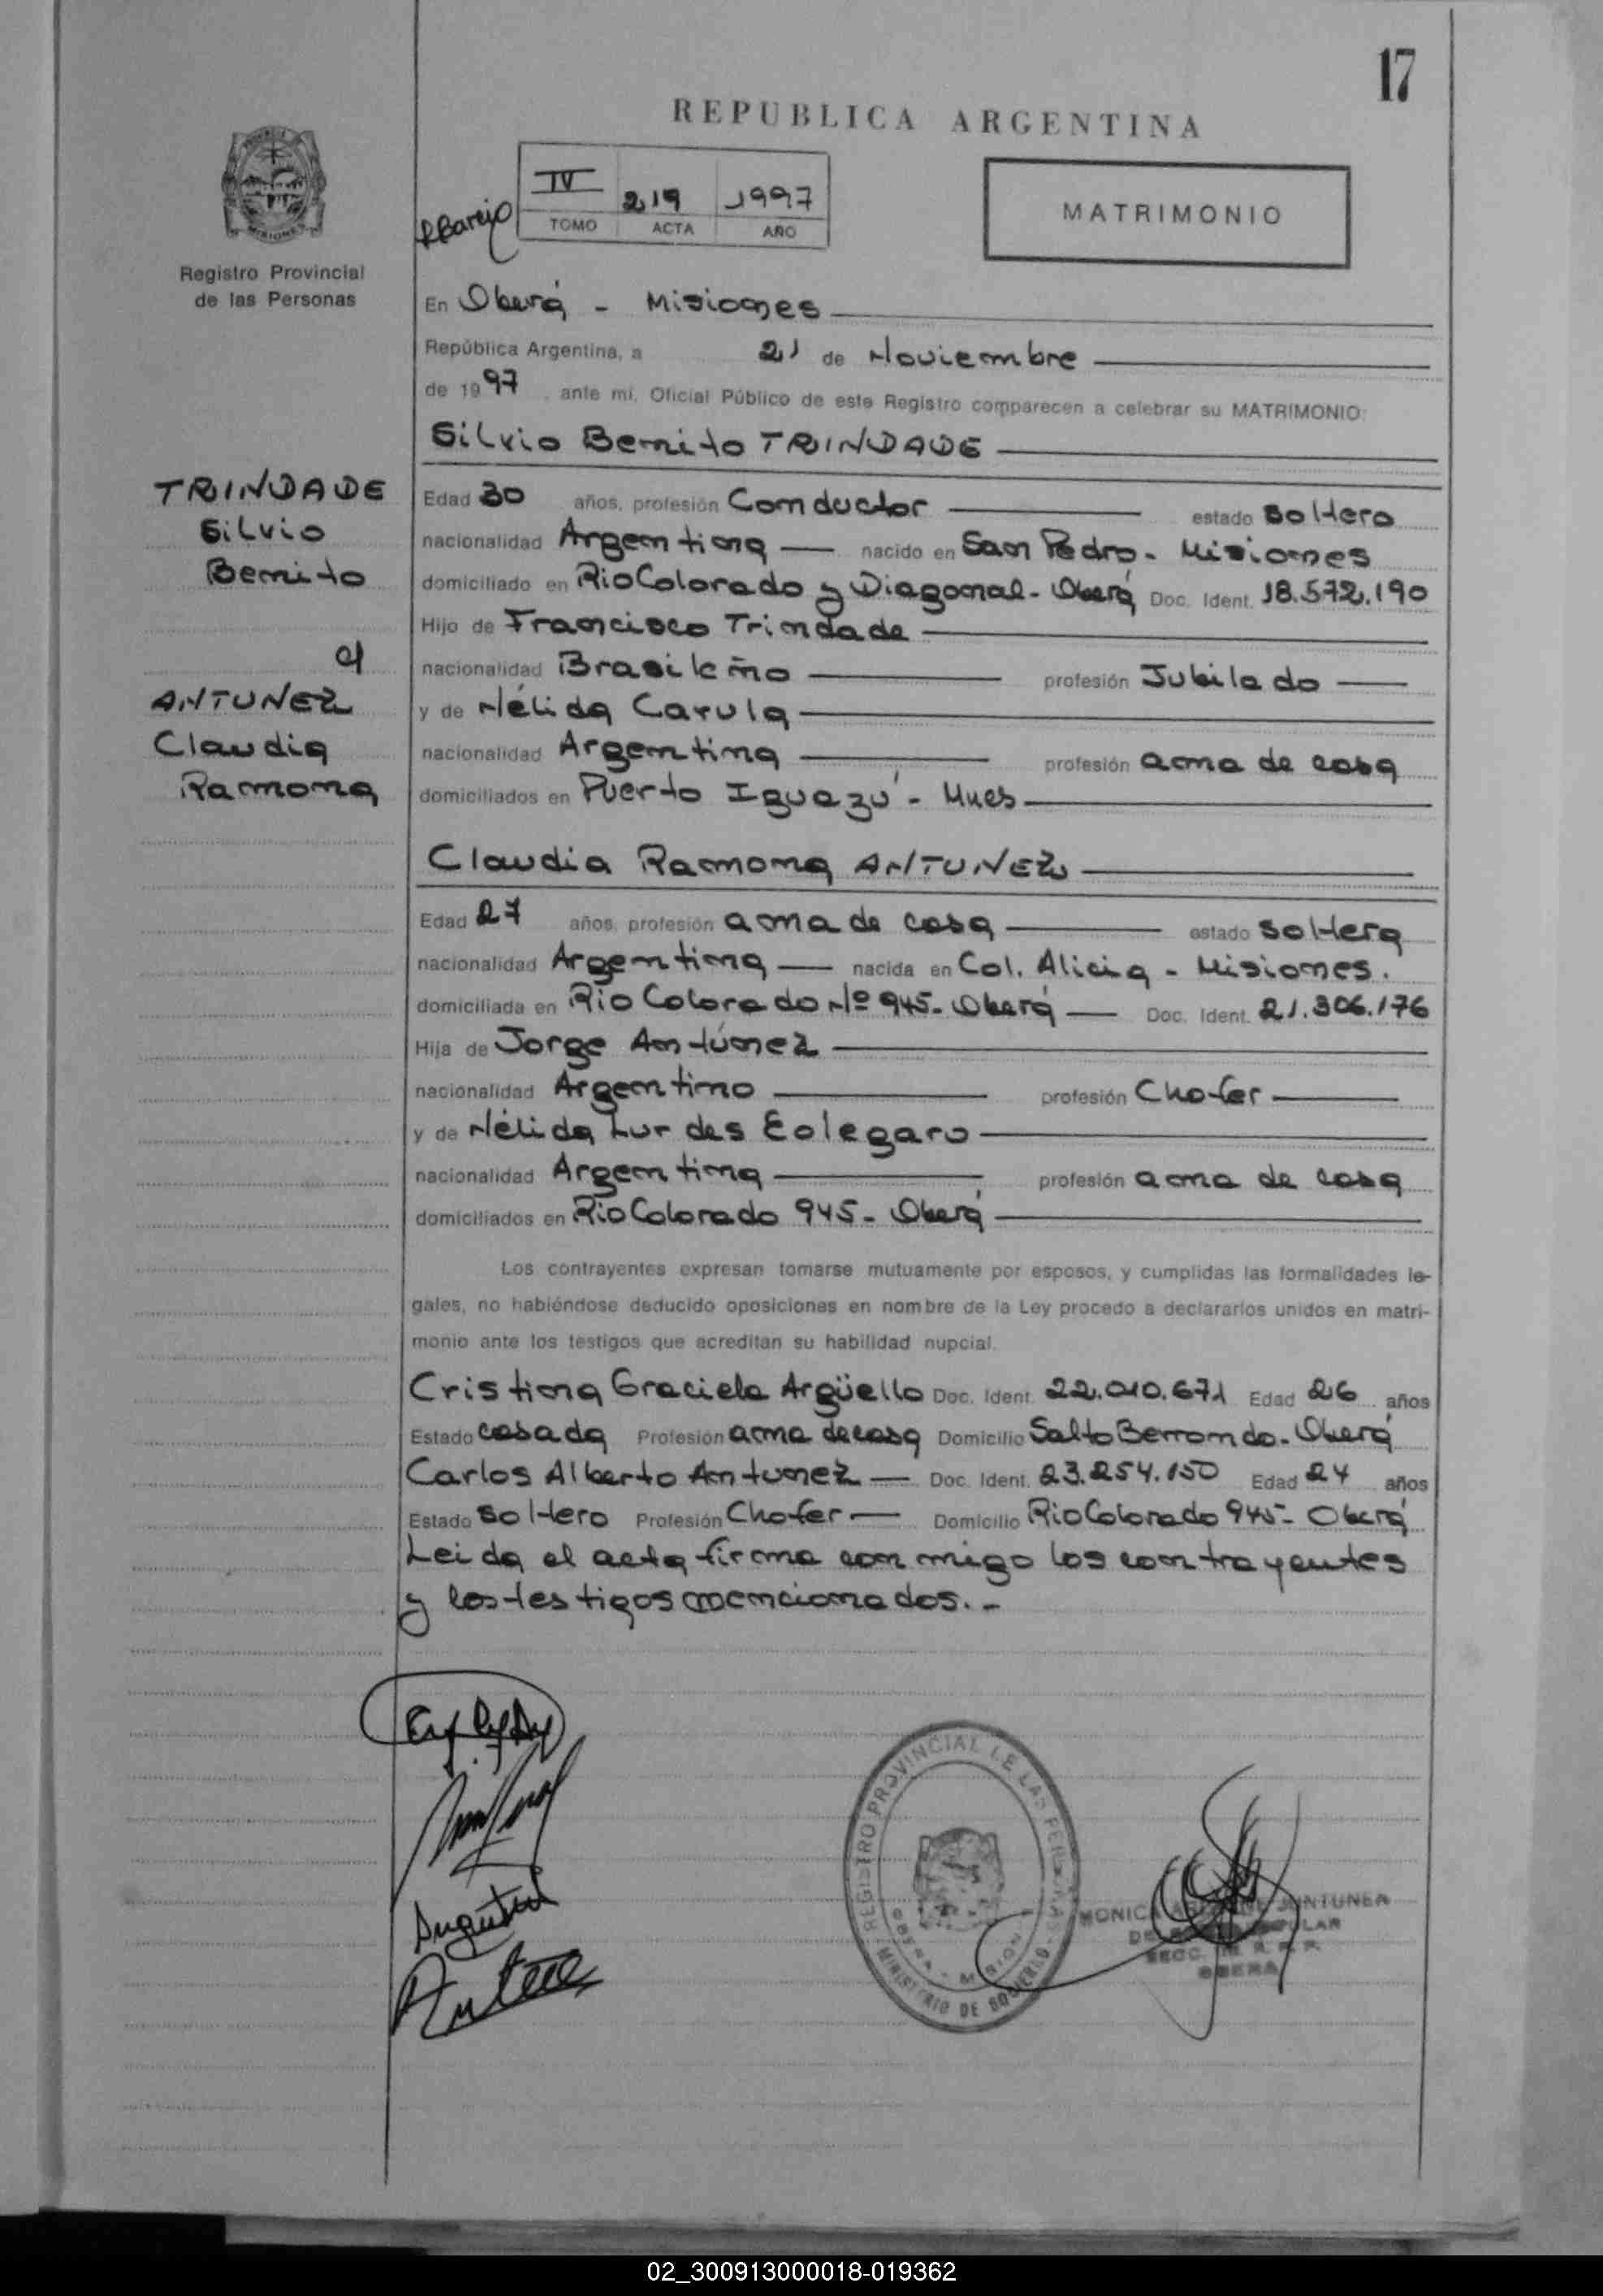 17
REPUBLICA ARGENTINA
MATRIMONIO
IV 219 1997
TOMO ACTA AÑO
Registro Provincial
de las Personas
En Oberá - Misiones
República Argentina, a 21 de Noviembre
de 1997, ante mí, Oficial Público de este Registro comparecen a celebrar su MATRIMONIO:
Silvio Benito TRINDADE
TRINDADE
Silvio
Benito
c/
ANTUNEZ
Claudia
Ramona
Edad 30 años, profesión Conductor estado Soltero
nacionalidad Argentina nacido en San Pedro - Misiones
domiciliado en Rio Colorado y Diagonal - Oberá Doc. Ident. 18.572.190
Hijo de Francisco Trindade
nacionalidad Brasileño profesión Jubilado
y de Nélida Carula
nacionalidad Argentina profesión ama de casa
domiciliados en Puerto Iguazú - Mnes
Claudia Ramona ANTUNEZ
Edad 27 años, profesión ama de casa estado Soltera
nacionalidad Argentina nacida en Col. Alicia - Misiones.
domiciliada en Rio Colorado Nº 945 - Oberá Doc. Ident. 21.306.176
Hija de Jorge Antúnez
nacionalidad Argentino profesión Chofer
y de Nélida Lurdes Eolegaro
nacionalidad Argentina profesión ama de casa
domiciliados en Rio Colorado 945 - Oberá
Los contrayentes expresan tomarse mutuamente por esposos, y cumplidas las formalidades le-
gales, no habiéndose deducido oposiciones en nombre de la Ley procedo a declararlos unidos en matri-
monio ante los testigos que acreditan su habilidad nupcial.
Cristina Graciela Argüello Doc. Ident. 22.010.671 Edad 26 años
Estado casada Profesión ama de casa Domicilio Salto Berrondo - Oberá
Carlos Alberto Antunez Doc. Ident. 23.254.150 Edad 24 años
Estado Soltero Profesión Chofer Domicilio Rio Colorado 945 - Oberá
Leida el acta firma conmigo los contrayentes
y los testigos mencionados.-
REGISTRO PROVINCIAL DE LAS PERSONAS
OBERA - MISIONES
MINISTERIO DE GOBIERNO
MONICA
OBERA
02_300913000018-019362